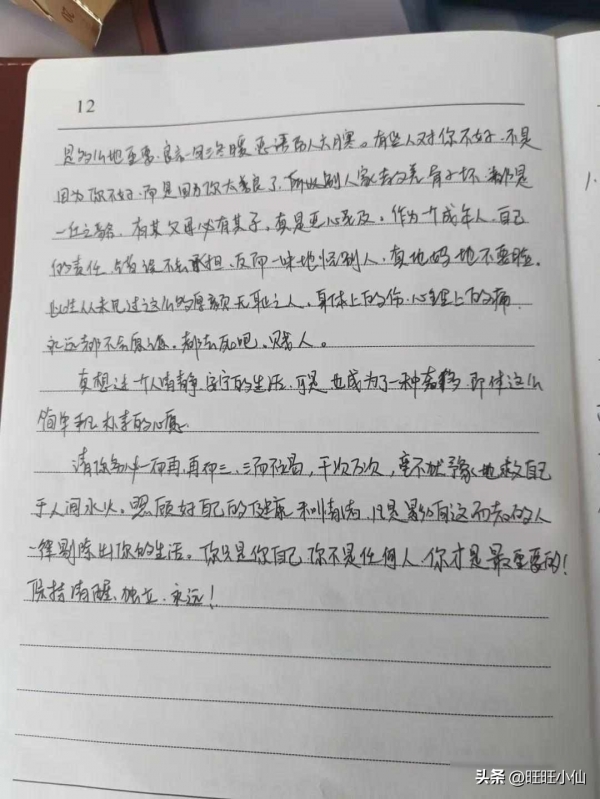 12
是多么地重要,良言一句三冬暖,恶语伤人六月寒。有些人对你不好,不是
因为你不好,而是因为你太善良了,所以别人家去的差,骨子坏,都是
一丘之貉,有其父母必有其子,真是恶心至及,作为一个成年人,自己
的责任,错误不去承担,反而一味地怪别人,真他妈地不要脸。
此生从未见过这么的厚颜无耻之人,身体上的伤,心理上的痛,
永远都不会愈合,都去死吧,贱人。
真想过一个人清静、安宁的生活,可是也成为了一种奢移,即使这么
简单和朴素的心愿。
请你务必一而再,再而三,三而不竭,千次万次,毫不犹豫地救自己
于人间水火。照顾好自己的健康和情绪,凡是影响这两者的人
一律剔除出你的生活。你只是你自己,你不是任何人,你才是最重要的!
保持清醒、独立,永远!
1.
头条 @旺旺小仙